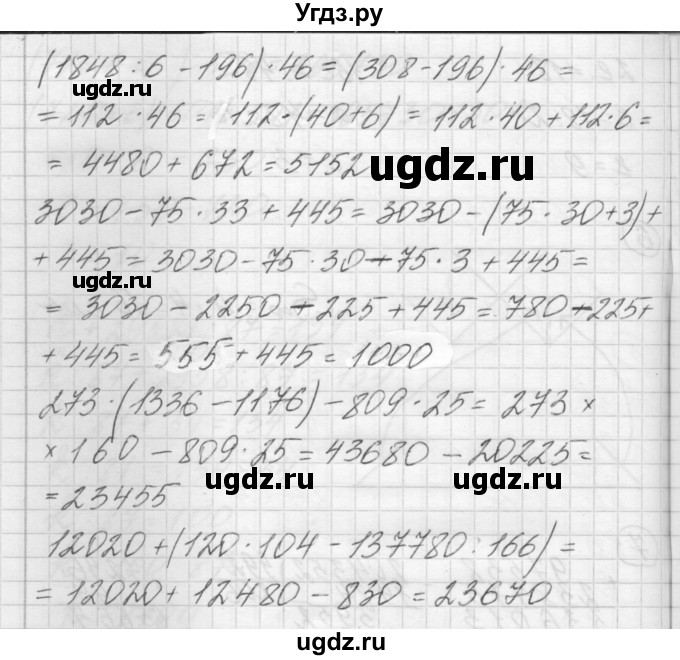 Угдз.ру
(1848 : 6 - 196) · 46 = (308 - 196) · 46 =
угдз.ру
= 112 · 46 = (112 · (40 + 6) = 112 · 40 + 112 · 6 =
= 4480 + 672 = 5152
ugdz.ru
3030 - 75 · 33 + 445 = 3030 - (75 · 30 + 3) +
+ 445 = 3030 - 75 · 30 - 75 · 3 + 445 =
= 3030 - 2250 - 225 + 445 = 780 - 225 +
+ 445 = 555 + 445 = 1000
273 · (1336 - 1176) - 809 · 25 = 273 ×
× 160 - 809 · 25 = 43680 - 20225 =
ugdz.ru ugdz.ru
= 23455
12020 + (120 · 104 - 137780 : 166) =
угдз.ру
= 12020 + 12480 - 830 = 23670
ugdz.ru